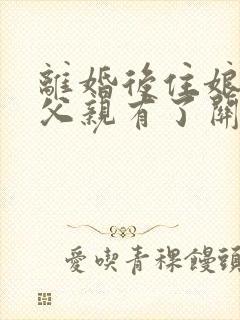 離婚後住娘
父親有了關
愛喫青稞饅頭